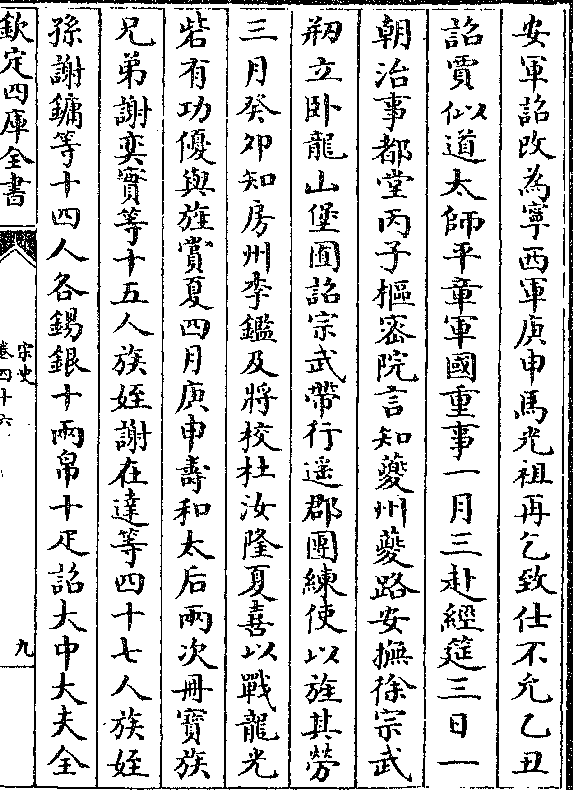 安軍詔改為寧西軍庚申馬光祖再乞致仕不允乙丑
詔賈似道太師平章軍國重事一月三赴經筵三日一
朝治事都堂丙子樞宻院言知夔州夔路安撫徐宗武
剏立卧龍山堡囿詔宗武帶行遥郡團練使以旌其勞
三月癸夘知房州李鑑及將校杜汝隆夏喜以戰龍光
砦有功優與旌賞夏四月庚申壽和太后兩次冊寳族
兄弟謝奕實等十五人族姪謝在達等四十七人族姪
孫謝鏞等十四人各錫銀十兩帛十疋詔大中大夫全
欽定四庫全書
宋史
卷四十六
九